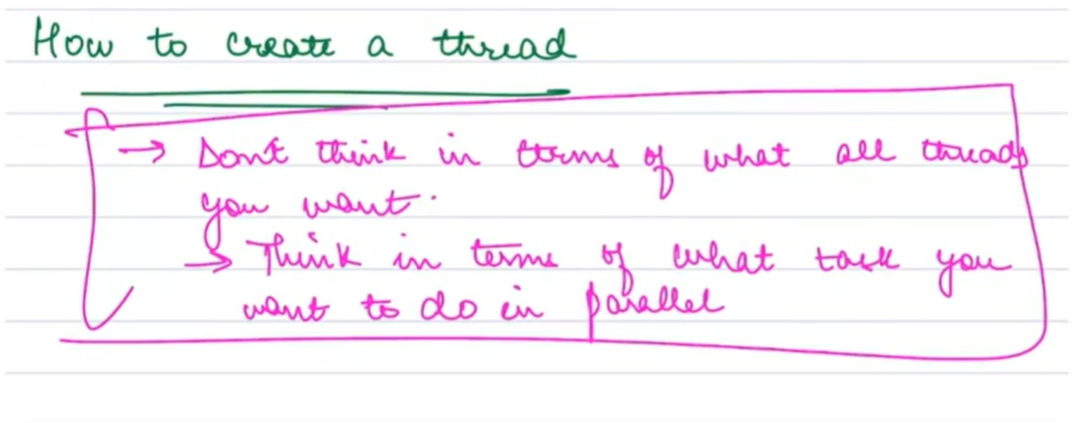 How to create a thread
→ Don't think in terms of what all threads
you want.
→ Think in terms of what task you
want to do in parallel